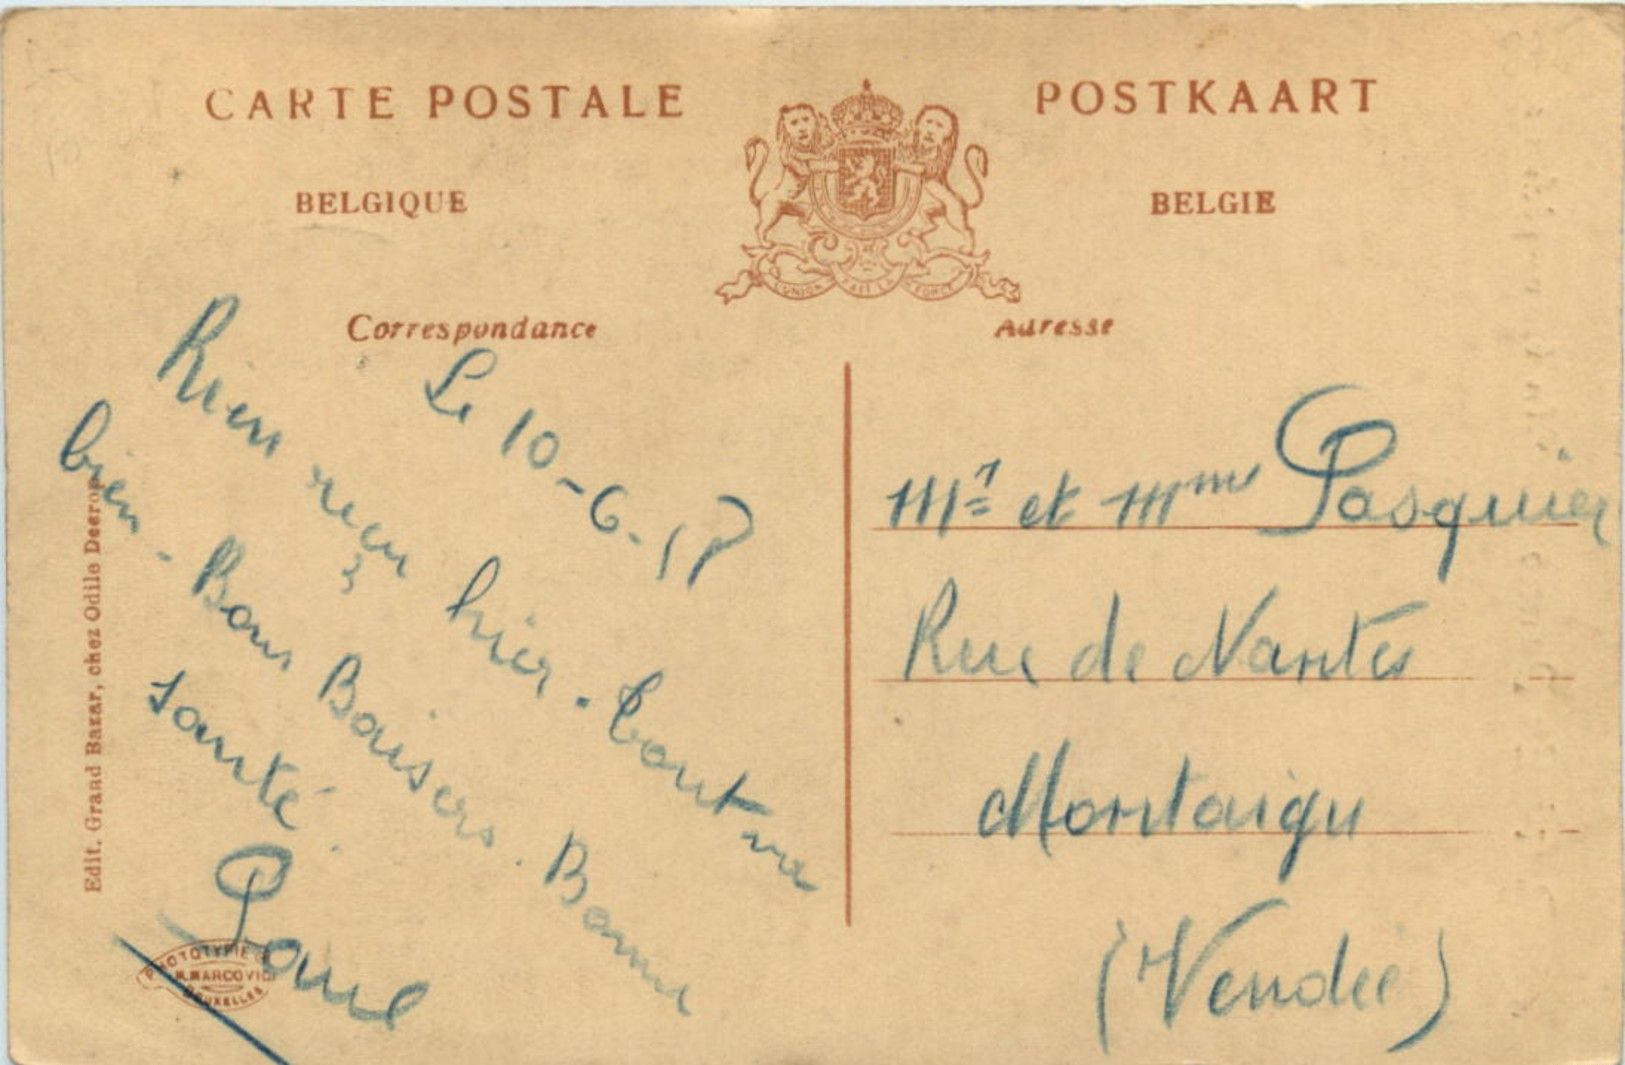 CARTE POSTALE
POSTKAART
BELGIQUE
BELGIE
L'UNION FAIT LA FORCE
Correspondance
Adresse
Le 10-6-18
Rien reçu hier. Tout va
bien - Bons Baisers. Bonne
santé.
Paul
Mr et Mme Pasquier
Rue de Nantes
Montaigu
(Vendée)
Edit. Grand Bazar, chez Odile Decrop
PHOTOTYPIE
M. MARCOVICI
BRUXELLES